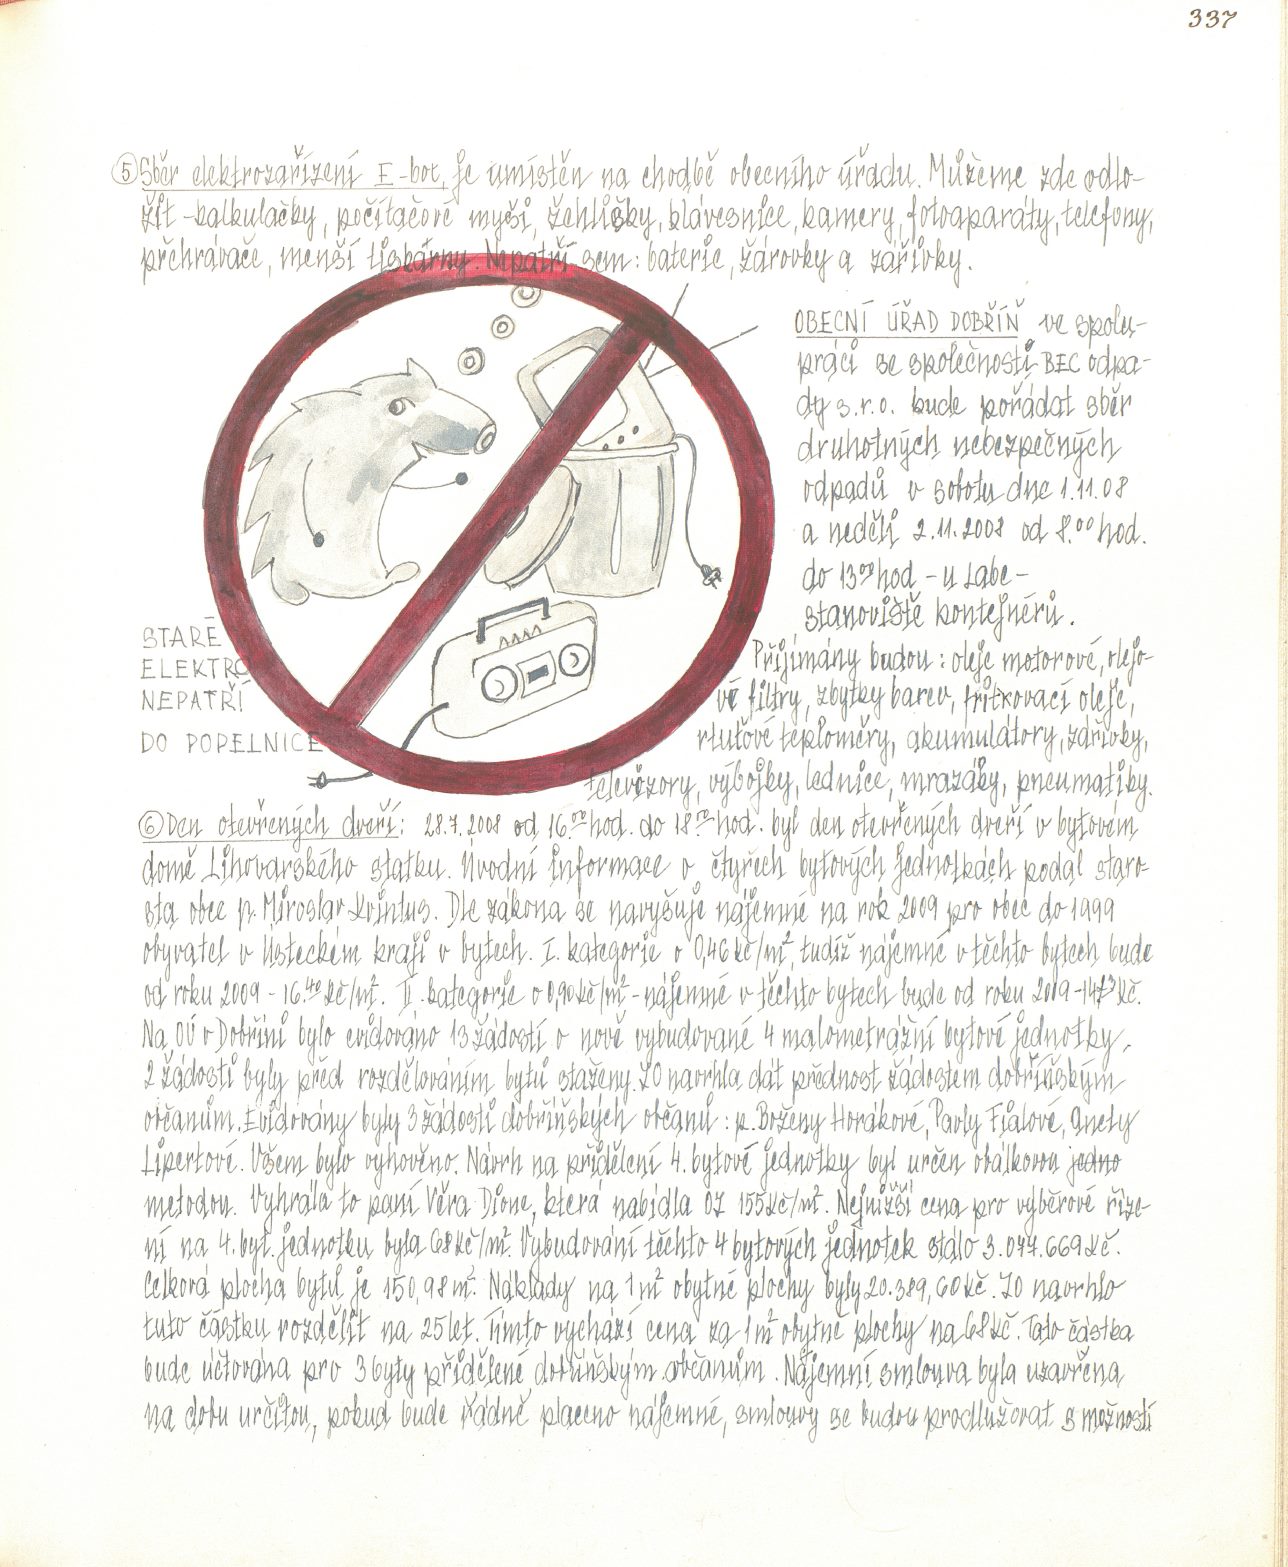 337
⑤ Sběr elektrozařízení E-box, je umístěn na chodbě obecního úřadu. Můžeme zde odlo-
žit - kalkulačky, počítačové myši, žehličky, klávesnice, kamery, fotoaparáty, telefony,
přehrávače, menší tiskárny. Nepatří sem: baterie, žárovky a zářivky.
OBECNÍ ÚŘAD DOBŘÍŇ ve spolu-
práci se společností BEC odpa-
dy s.r.o. bude pořádat sběr
druhotných nebezpečných
odpadů v sobotu dne 1.11.08
a neděli 2.11.2008 od 8.00 hod.
do 13 00 hod - u Labe -
stanoviště kontejnérů.
STARÉ
ELEKTRO
NEPATŘÍ
DO POPELNICE
Přijímány budou: oleje motorové, olejo-
vé filtry, zbytky barev, fritovací oleje,
rtuťové teploměry, akumulátory, zářivky,
televizory, výbojky, lednice, mrazáky, pneumatiky.
⑥ Den otevřených dveří: 28.7.2008 od 16.00 hod. do 18 00 hod. byl den otevřených dveří v bytovém
domě Lihovarského statku. Úvodní informace o čtyřech bytových jednotkách podal staro-
sta obec p. Miroslav Kvintus. Dle zákona se navyšuje nájemné na rok 2009 pro obec do 1999
obyvatel v Ústeckém kraji v bytech. I. kategorie o 0,46 Kč/m², tudíž nájemné v těchto bytech bude
od roku 2009 - 16.40 Kč/m². II. kategorie o 0,90 Kč/m² - nájemné v těchto bytech bude od roku 2019 - 14 73 Kč.
Na OÚ v Dobříni bylo evidováno 13 žádostí o nově vybudované 4 malometrážní bytové jednotky.
2 žádosti byly před rozdělováním bytů staženy. ZO navrhla dát přednost žádostem dobříňským
občanům. Evidovány byly 3 žádosti dobříňských občanů: p. Boženy Horákové, Pavly Fialové, Anety
Lipertové. Všem bylo vyhověno. Návrh na přidělení 4. bytové jednotky byl určen obálkovou jedno
metodou. Vyhrála to paní Věra Dione, která nabídla OZ 155 Kč/m². Nejnižší cena pro výběrové říze-
ní na 4. byt. jednotku byla 68 Kč/m². Vybudování těchto 4 bytových jednotek stálo 3.077.669 Kč.
Celková plocha bytů je 150,98 m². Náklady na 1 m² obytné plochy byly 20.389,60 Kč. ZO navrhlo
tuto částku rozdělit na 25 let. Tímto vychází cena za 1 m² obytné plochy na 68 Kč. Tato částka
bude účtována pro 3 byty přidělené dobříňským občanům. Nájemní smlouva byla uzavřena
na dobu určitou, pokud bude řádně placeno nájemné, smlouvy se budou prodlužovat s možností